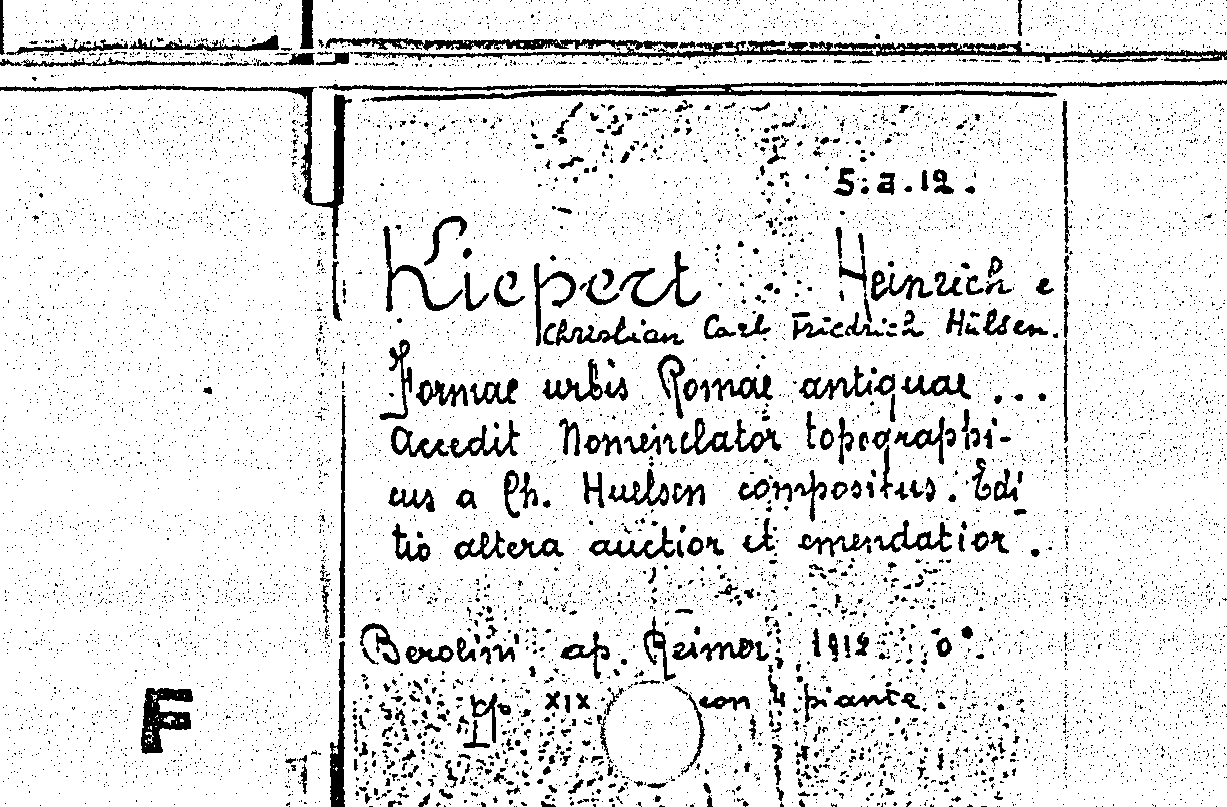 5.a.12.
Kiepert Heinrich e
Christian Carl Friedrich Hülsen.
Formae urbis Romae antiquae ...
Accedit Nomenclator topographi-
cus a Ch. Huelsen compositus. Edi
tio altera auctior et emendatior.
Berolini ap. Reimer 1912. 0°.
XIX con 4 piante.
F